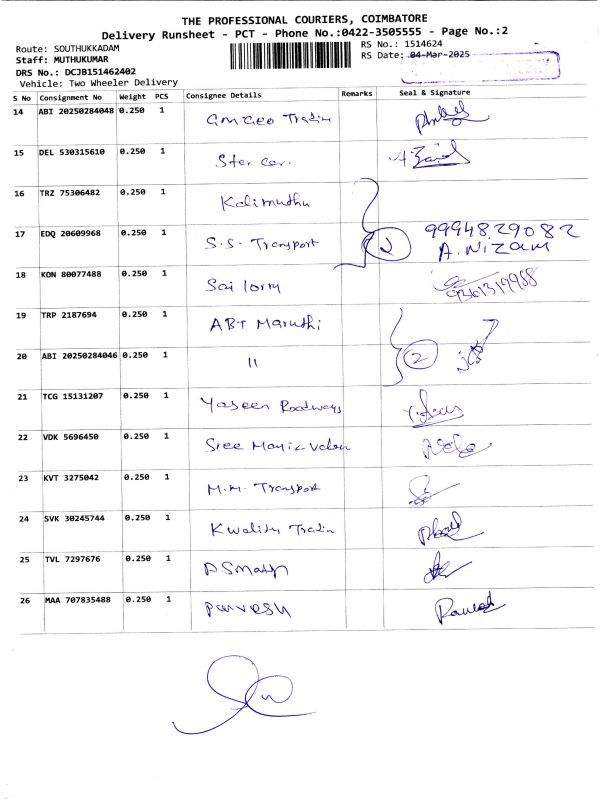 THE PROFESSIONAL COURIERS, COIMBATORE
Delivery Runsheet - PCT - Phone No.:0422-3505555 - Page No.:2
Route: SOUTHUKKADAM RS No.: 1514624
Staff: MUTHUKUMAR RS Date: 04-Mar-2025
DRS No.: DCJB151462402
Vehicle: Two Wheeler Delivery
S No Consignment No Weight PCS Consignee Details Remarks Seal & Signature
14 ABI 20250284048 0.250 1
15 DEL 530315610 0.250 1 Star Car.
16 TRZ 75306482 0.250 1 Kalimuthu
17 EDQ 20609968 0.250 1 S.S. Transport 2 9994829082
A.NIZAM
18 KON 80077488 0.250 1 Sai lorry
19 TRP 2187694 0.250 1 ABT Maruthi
20 ABI 20250284046 0.250 1 11 2
21 TCG 15131207 0.250 1 Yaseen Roadways
22 VDK 5696450 0.250 1 Sree
23 KVT 3275042 0.250 1 M.M. Transport
24 SVK 30245744 0.250 1 Kwality Tradin
25 TVL 7297676 0.250 1
26 MAA 707835488 0.250 1 Parvesh